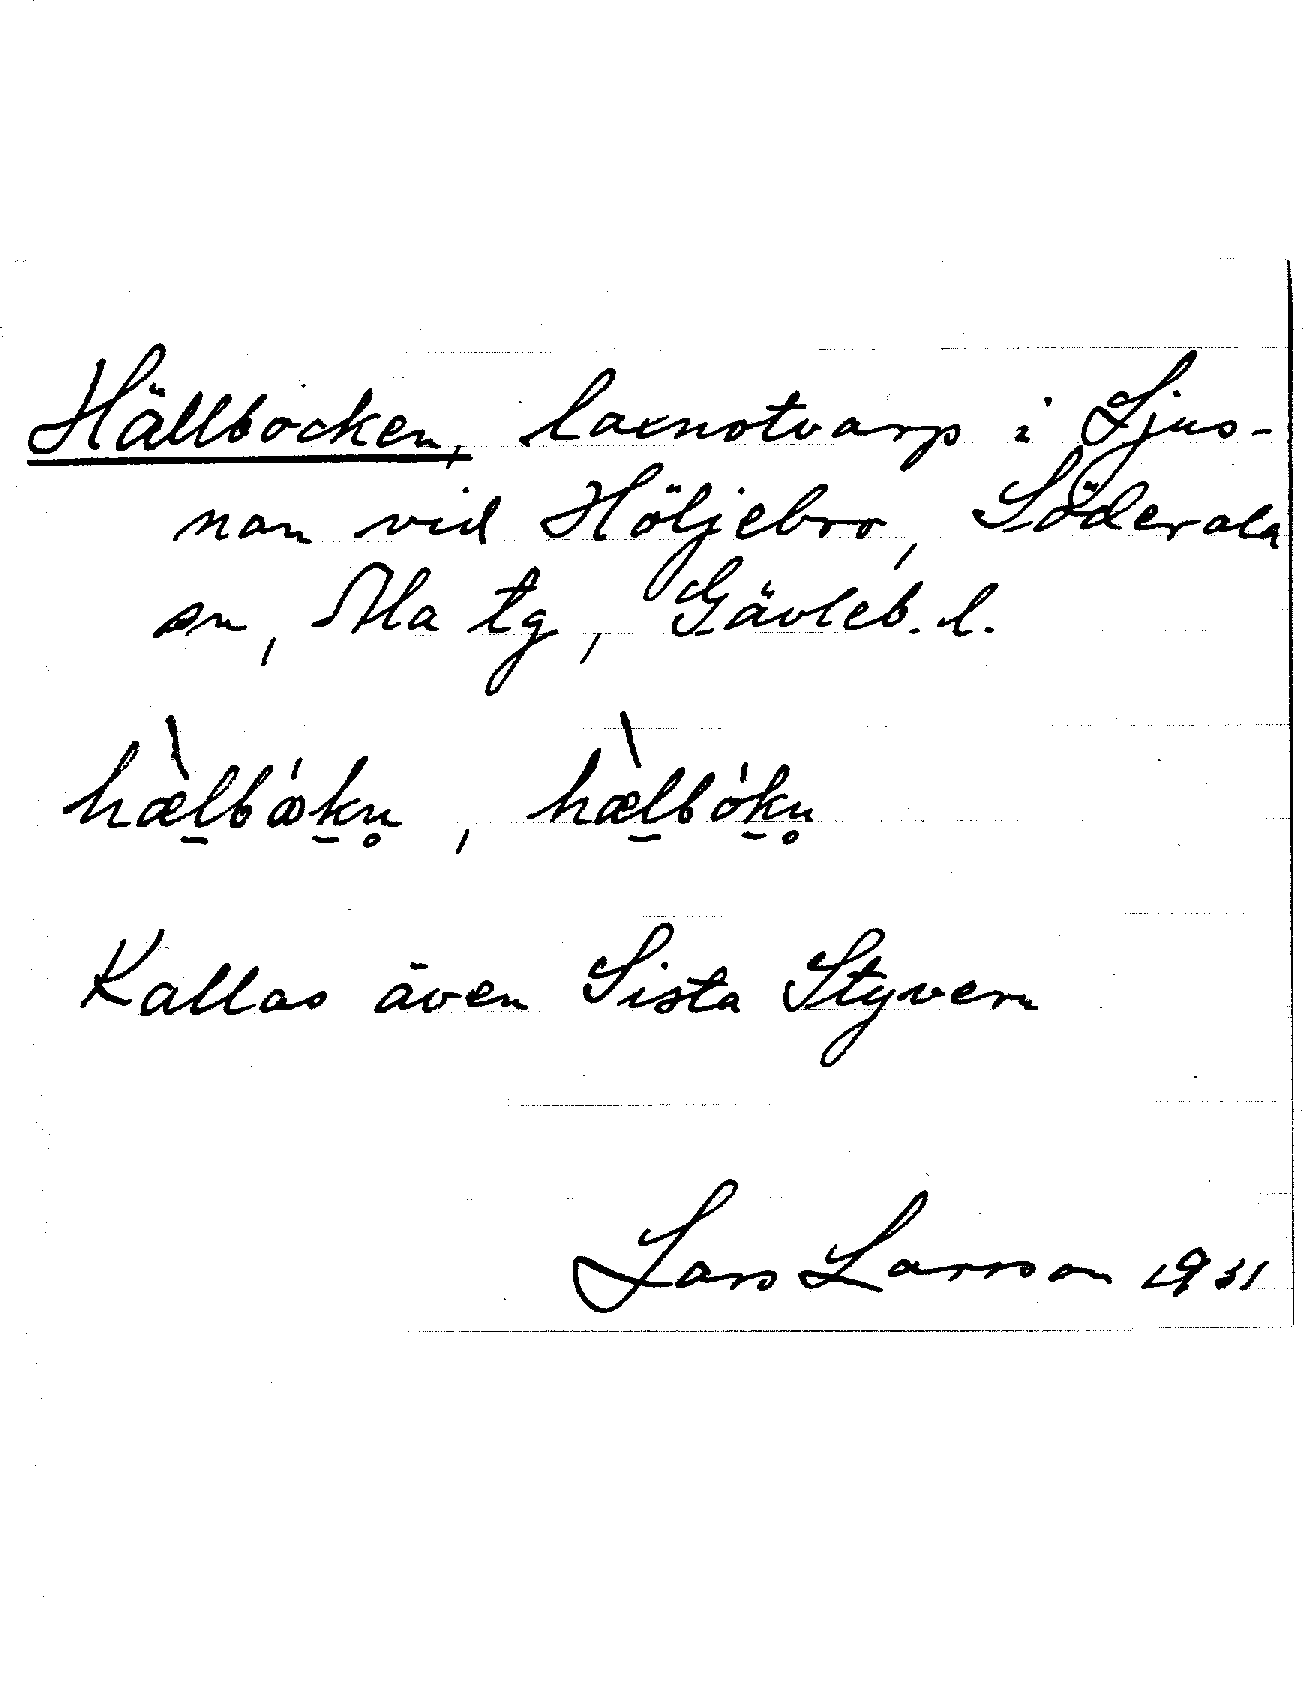 Hällbocken, laxnotvarp i Ljus-
nan vid Höljebro, Söderala
sn, Ala tg, Gävleb. l.
hæ̀l̠bǿk̠n̥, hæ̀l̠bók̠n̥
Kallas även Sista Styvern
Lars Larsson 1931